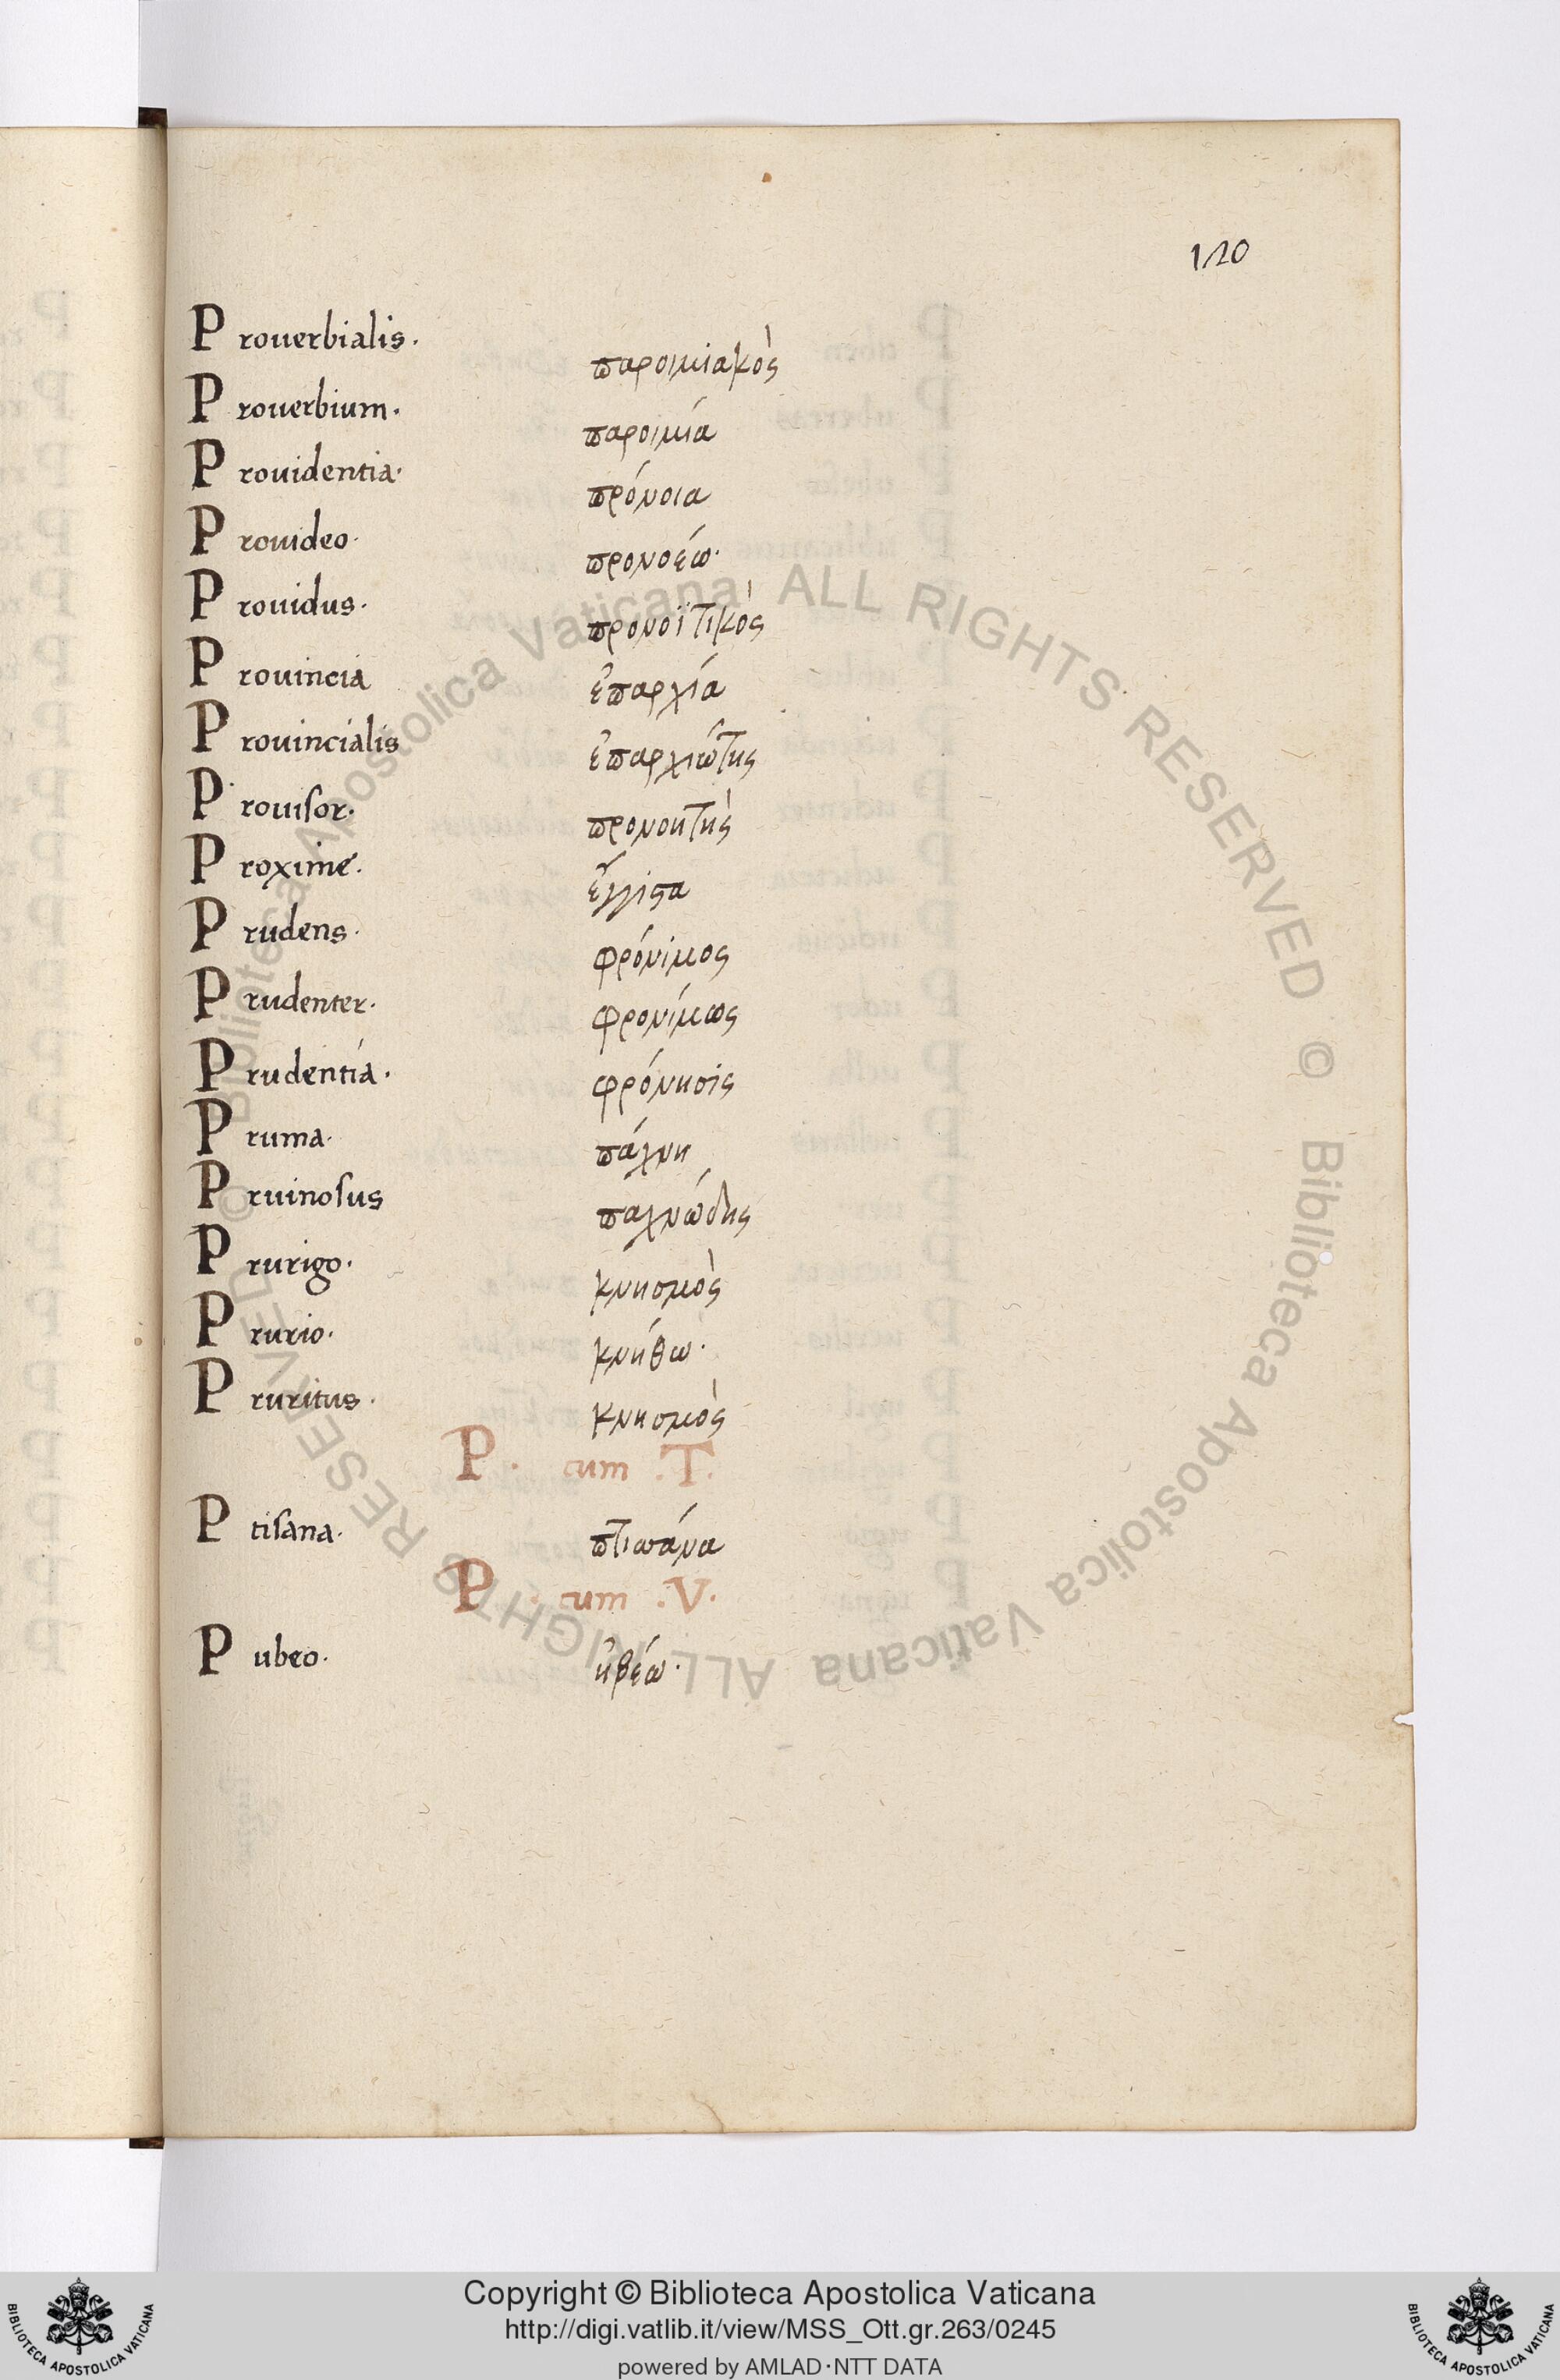 120
Prouerbialis. παροιμιακὸς
Prouerbium. παροιμία
Prouidentia. πρόνοια
Prouideo. προνοέω.
Prouidus. προνοϊτικὸς
Prouincia ἐπαρχία
Prouincialis ἐπαρχιώτης
Prouisor. προνοητὴς
Proxime. ἔγγιστα
Prudens. φρόνιμος
Prudenter. φρονίμως
Prudentia. φρόνησις
Pruma. πάχνη
Pruinosus παχνώδης
Prurigo. κνησμὸς
Prurio. κνήθω.
Pruritus. κνησμὸς
P. cum .T.
Ptisana. πτισάνα
P. cum .V.
Pubeo. ἡβέω.
© Biblioteca Apostolica Vaticana ALL RIGHTS RESERVED © Biblioteca Apostolica Vaticana ALL RIGHTS RESERVED
Copyright © Biblioteca Apostolica Vaticana
http://digi.vatlib.it/view/MSS_Ott.gr.263/0245
powered by AMLAD·NTT DATA
BIBLIOTECA APOSTOLICA VATICANA
BIBLIOTECA APOSTOLICA VATICANA